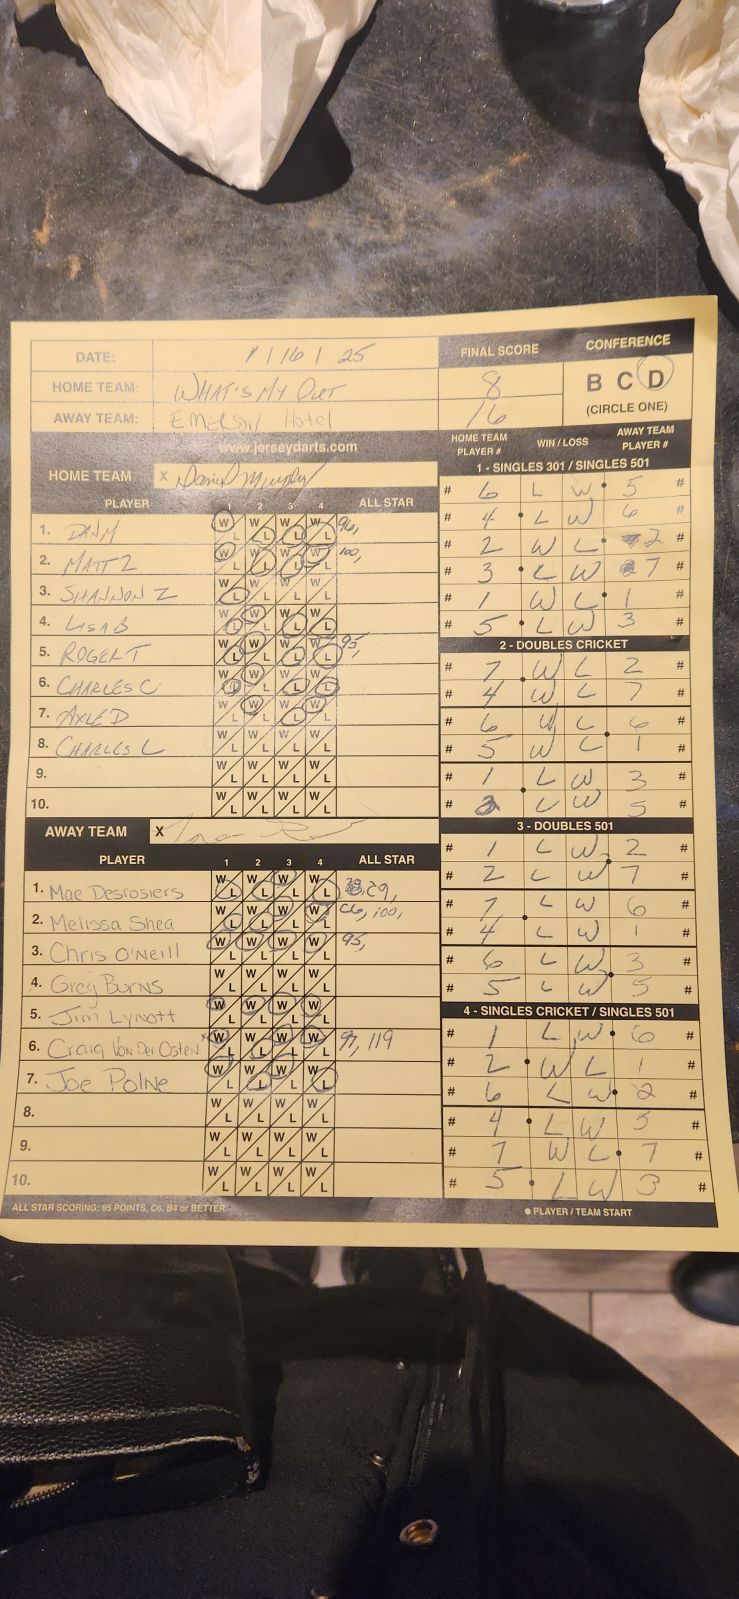 DATE: 1/16/25
HOME TEAM: WHAT'S MY OUT
AWAY TEAM: EMERSON Hotel
FINAL SCORE
8
16
CONFERENCE
B C D
(CIRCLE ONE)
www.jerseydarts.com
HOME TEAM X Daniel Murphy
PLAYER 1 2 3 4 ALL STAR
1. DAN M W L W L W L W L 96,
2. MATT Z W L W L W L W L 100,
3. SHANNON Z W L W L W L W L
4. LISA B W L W L W L W L
5. ROGER T W L W L W L W L 95,
6. CHARLES C W L W L W L W L
7. AXLE D W L W L W L W L
8. CHARLES L W L W L W L W L
9. W L W L W L W L
10. W L W L W L W L
AWAY TEAM X
PLAYER 1 2 3 4 ALL STAR
1. Mae Desrosiers W L W L W L W L 29,
2. Melissa Shea W L W L W L W L C6, 100,
3. Chris O'Neill W L W L W L W L 95,
4. Greg Burns W L W L W L W L
5. Jim Lynott W L W L W L W L
6. Craig Von Der Osten W L W L W L W L 97, 119
7. Joe Polne W L W L W L W L
8. W L W L W L W L
9. W L W L W L W L
10. W L W L W L W L
ALL STAR SCORING: 95 POINTS, C6, B4 or BETTER
HOME TEAM PLAYER # WIN / LOSS AWAY TEAM PLAYER #
1 - SINGLES 301 / SINGLES 501
# 6 L W 5 #
# 4 L W 6 #
# 2 W L 2 #
# 3 L W 7 #
# 1 W L 1 #
# 5 L W 3 #
2 - DOUBLES CRICKET
# 7 W L 2 #
# 4 W L 7 #
# 6 W L 6 #
# 5 W L 1 #
# 1 L W 3 #
# 2 L W 5 #
3 - DOUBLES 501
# 1 L W 2 #
# 2 L W 7 #
# 7 L W 6 #
# 4 L W 1 #
# 6 L W 3 #
# 5 L W 5 #
4 - SINGLES CRICKET / SINGLES 501
# 1 L W 6 #
# 2 W L 1 #
# 6 L W 2 #
# 4 L W 5 #
# 7 W L 7 #
# 5 L W 3 #
PLAYER / TEAM START